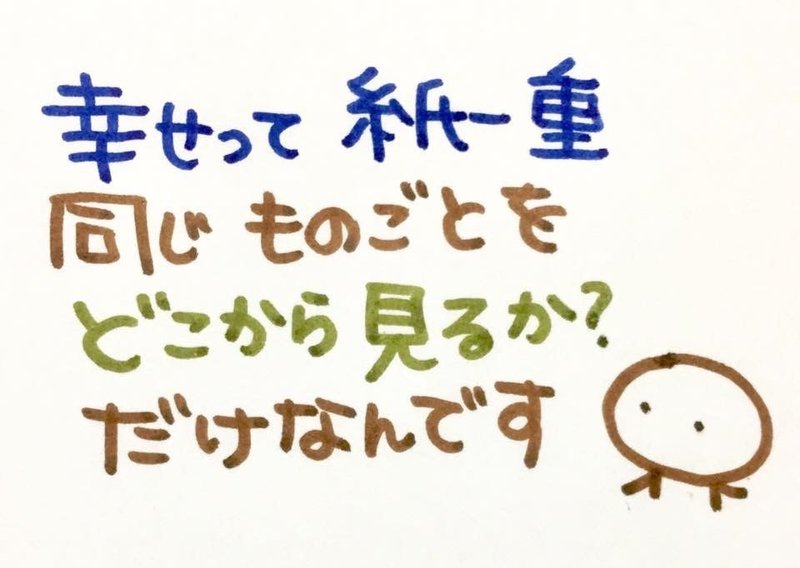 幸せって 紙一重
同じ ものごとを
どこから見るか?
だけなんです